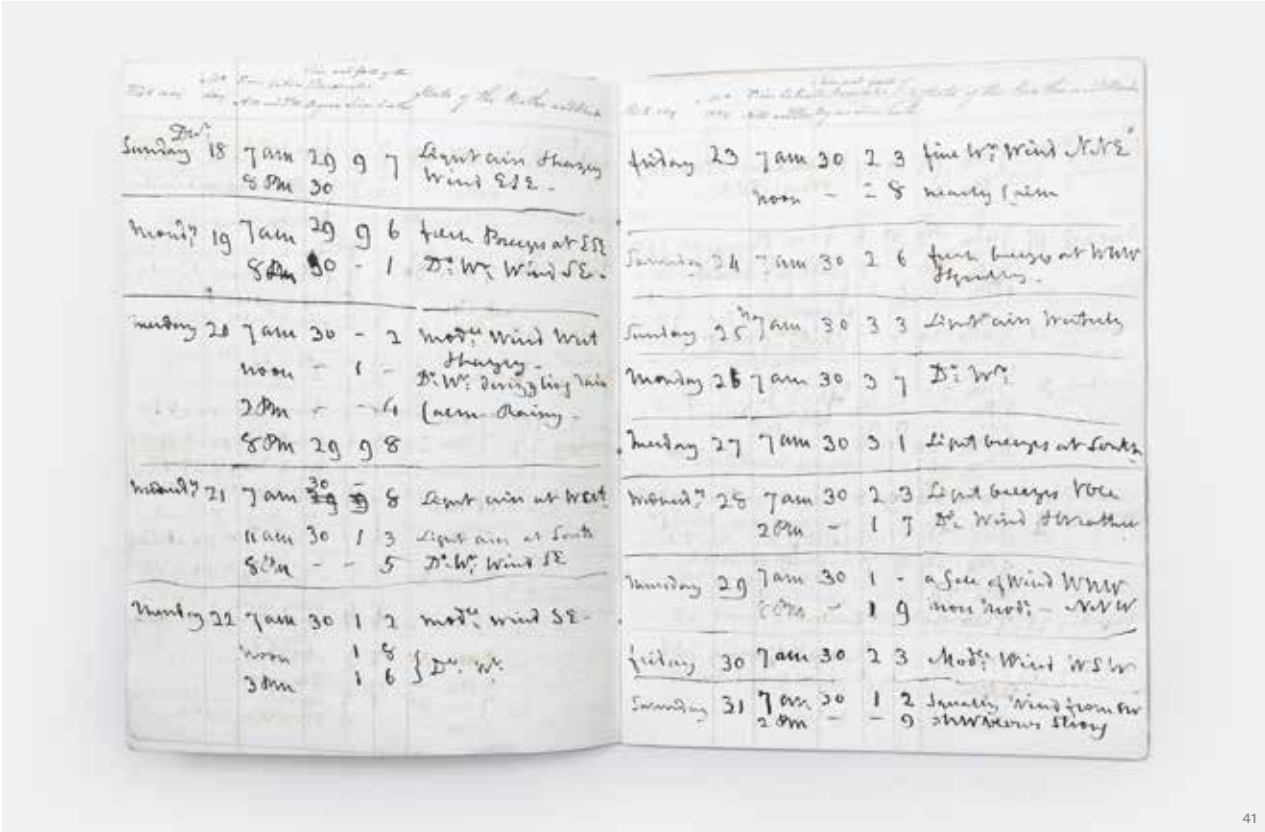 State of the Weather
Decr.
Sunday 18 7 am 29 9 7 Light airs Hazey
8 PM 30 Wind ESE -
Mondy 19 7 am 29 9 6 fresh Breezes at ESE
8 PM 30 - 1 Do. Wr. Wind SE -
Tuesday 20 7 am 30 - 2 modte Wind West
Hazey -
noon - 1 - Do. Wr. drizzling rain
2 PM - - 4 Calm Rainy -
8 PM 29 9 8
30 -
21 7 am 29 9 8 Light airs at West
11 am 30 1 3 Light airs at South
8 PM - - 5 Do. Wr. Wind SE
22 7 am 30 1 2 modte wind SE -
noon 1 8
3 PM 1 6 } Do. Wr.
State of the Weather
friday 23 7 am 30 2 3 fine Wr. Wind NNE
noon - 2 8 nearly Calm
24 7 am 30 2 6 fresh breezes at WNW
Sunday 25 7 am 30 3 3 Light airs Westerly
Monday 26 7 am 30 3 7 Do. Wr.
Tuesday 27 7 am 30 3 1 Light breezes at South
28 7 am 30 2 3 Light breezes
2 PM - 1 7 Do. Wind
Thursday 29 7 am 30 1 - a Gale of Wind WNW
8 PM - 1 9 more modte - NNW
friday 30 7 am 30 2 3 Modte Wind WSW
31 7 am 30 1 2 Squally Wind from SW
2 PM - - 9 Strong
41